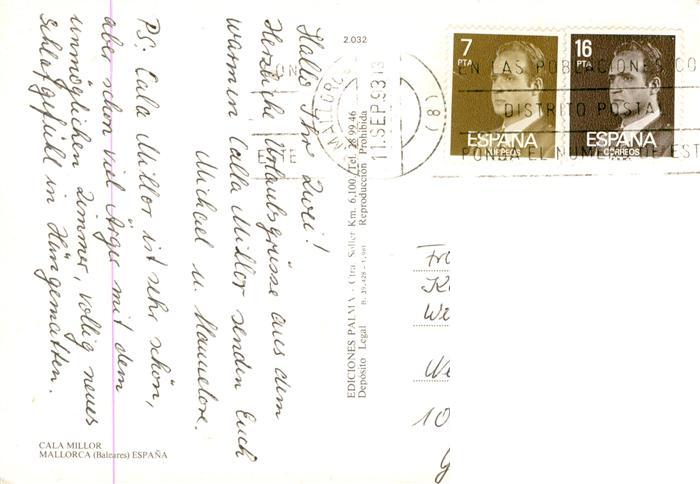 Hallo Ihr zwei!
Herzliche Urlaubsgrüsse aus dem
warmen Calla Millor senden Euch
Michael u. Hannelore.
PS: Cala Millor ist sehr schön,
aber schon viel Ärger mit dem
unmöglichen Zimmer, völlig neues
Schlafgefühl in Hängematten.
CALA MILLOR
MALLORCA (Baleares) ESPAÑA
2.032
EDICIONES PALMA - Ctra. Soller Km. 6,100 Tel. 28 99 46
Depósito Legal Reproducción Prohibida
MALLORCA
11.SEP.93 13
(8)
7
PTA
ESPAÑA
CORREOS
16
PTA
ESPAÑA
CORREOS
EN LAS POBLACIONES CO
DISTRITO POSTA
PONGA EL NUMERO DE EST
Fr
K
We
We
10